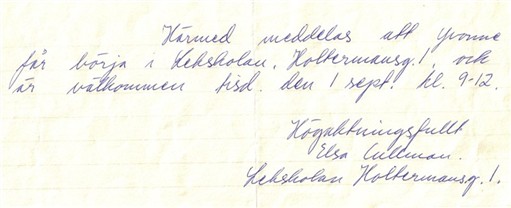 Härmed meddelas att Yvonne
får börja i Lekskolan, Holtermansg. 1. och
är välkommen tisd. den 1 sept. kl. 9-12.
Högaktningsfullt
Elsa Cullman.
Lekskolan Holtermansg. 1.